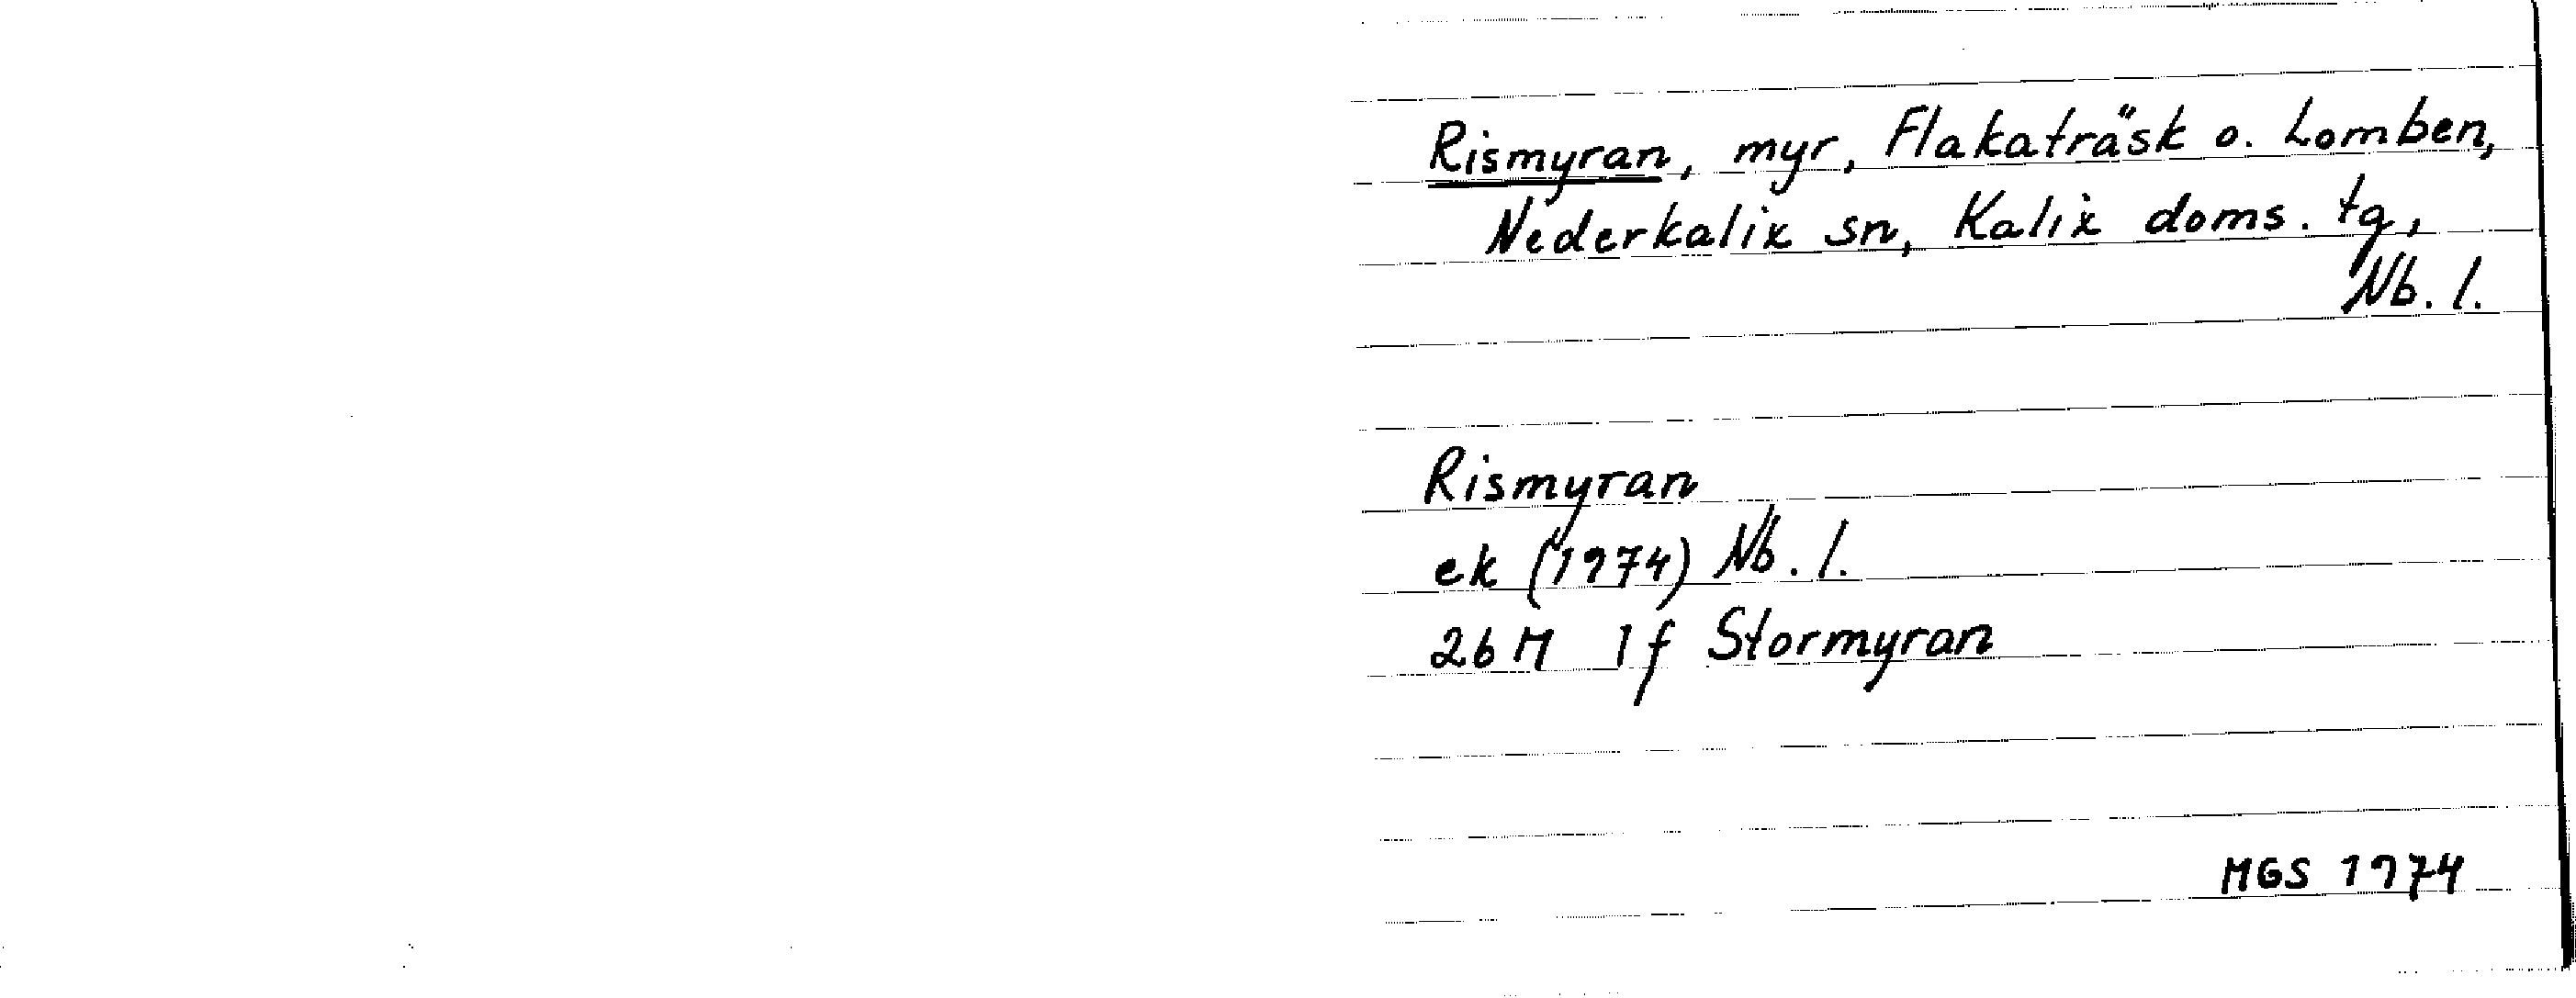 Rismyran, myr, Flakaträsk o. Lomben,
Nederkalix sn, Kalix doms. tg,
Nb. l.
Rismyran
ek (1974) Nb. l.
26 M 1 f Stormyran
MGS 1974